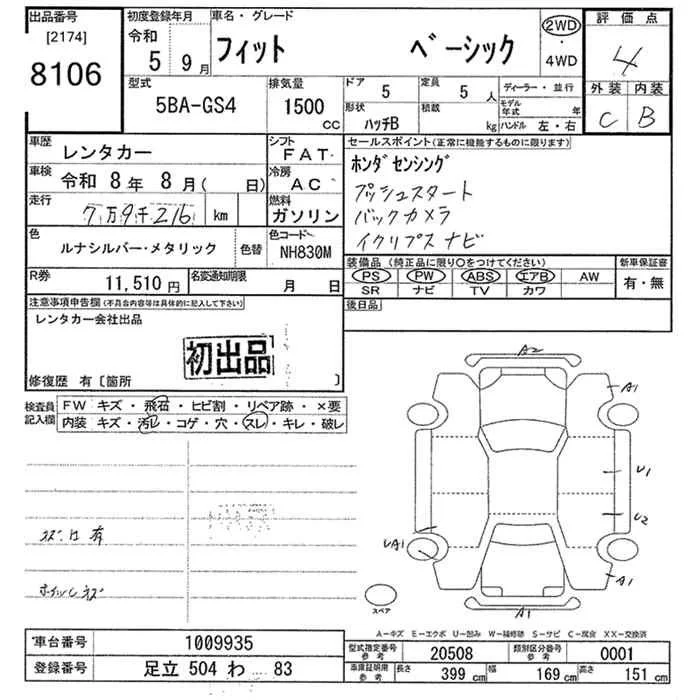 出品番号
[2174]
8106
初度登録年月
令和
5 9月
車名・グレード
フィット ベーシック
2WD
・
4WD
評価点
4
外装 内装
C B
型式
5BA-GS4
排気量
1500
cc
ドア
5
定員
5 人
ディーラー・並行
形状
ハッチB
積載
kg
モデル年式 年
ハンドル 左・右
車歴
レンタカー
シフト
FAT
車検
令和 8年 8月( 日)
冷房
AC
走行
7万9千216 km
燃料
ガソリン
色
ルナシルバー・メタリック
色替
色コード
NH830M
R券
11,510 円
名変通知期限
月 日
セールスポイント(正常に機能するものに限ります)
ホンダセンシング
プッシュスタート
バックカメラ
イクリプスナビ
装備品(純正品に限り〇をつけてください)
PS PW ABS エアB AW
SR ナビ TV カワ
新車保証書
有・無
後日品
注意事項申告欄(不具合内容等は具体的に記入して下さい)
レンタカー会社出品
初出品
修復歴 有〔箇所 〕
検査員記入欄
FW キズ・飛石・ヒビ割・リペア跡・×要
内装 キズ・汚レ・コゲ・穴・スレ・キレ・破レ
ホイルキズ
A2
A1
U1
U2
UA1
A1
A1
スペア
A-キズ E-エクボ U-凹み W-補修跡 S-サビ C-腐食 XX-交換済
車台番号
1009935
登録番号
足立 504 わ 83
型式指定番号
参考
20508
類別区分番号
参考
0001
車庫証明用
参考
長さ
399 cm
幅
169 cm
高さ
151 cm